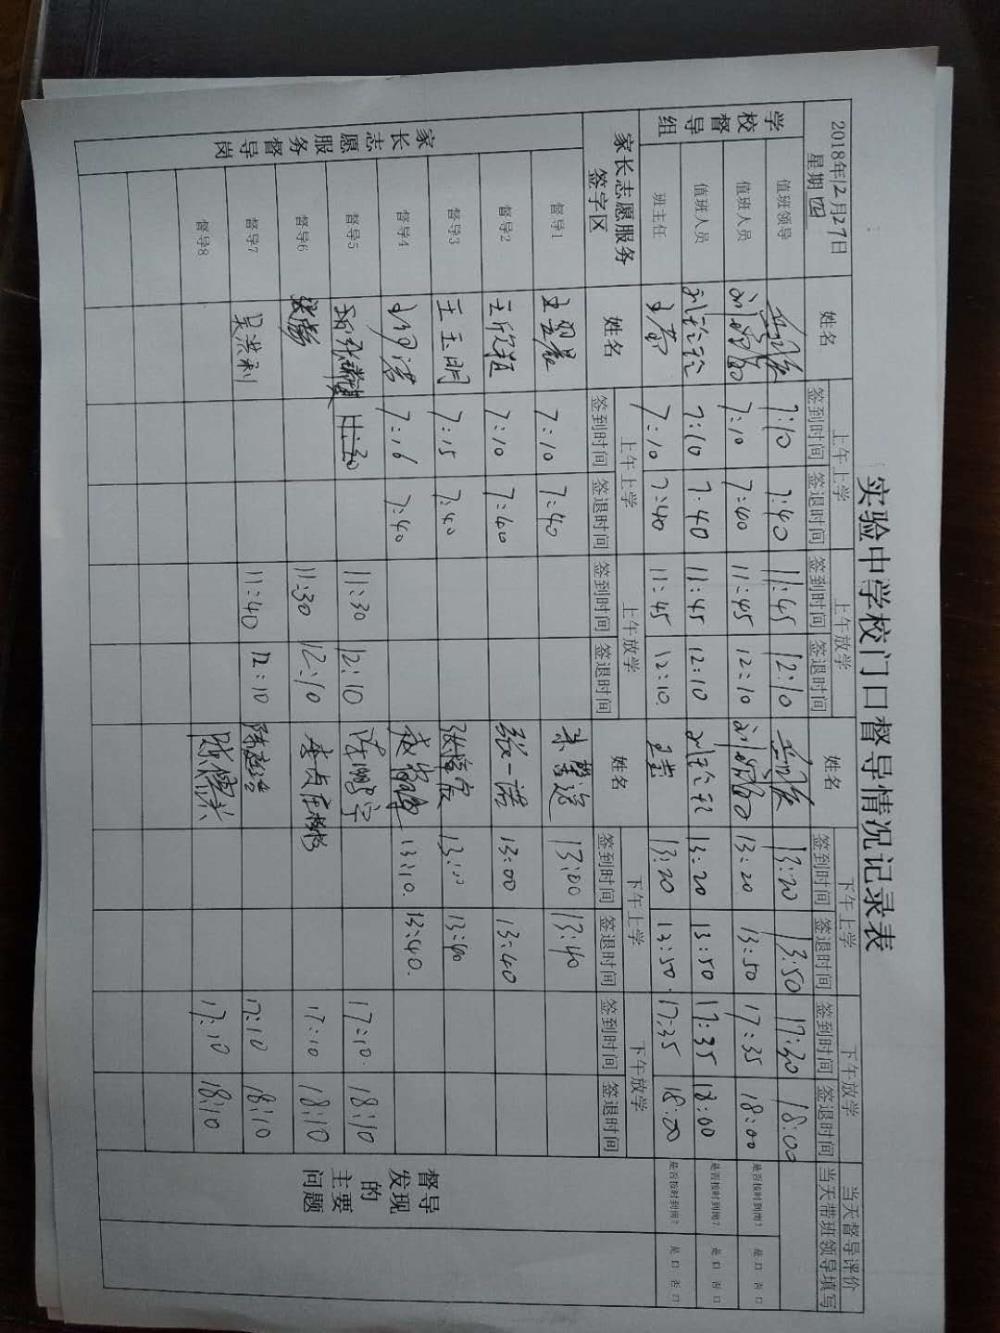 实验中学校门口督导情况记录表
2018年12月27日 姓名 上午上学 上午放学 姓名 下午上学 下午放学 当天督导评价
星期四 签到时间 签退时间 签到时间 签退时间 签到时间 签退时间 签到时间 签退时间 当天带班领导填写
学校督导组
值班领导 7:10 7:40 11:45 12:10 13:20 13:50 17:20 18:00
值班人员 7:10 7:40 11:45 12:10 13:20 13:50 17:35 18:00 是否按时到岗? 是口 否口
值班人员 7:10 7:40 11:45 12:10 13:20 13:50 17:35 18:00 是否按时到岗? 是口 否口
班主任 7:10 7:40 11:45 12:10 13:20 13:50 17:35 18:00 是否按时到岗? 是口 否口
家长志愿服务 姓名 上午上学 上午放学 姓名 下午上学 下午放学
签字区 签到时间 签退时间 签到时间 签退时间 签到时间 签退时间 签到时间 签退时间
家长志愿服务督导岗
督导1 7:10 7:40 13:00 13:40
督导2 7:10 7:40 张一诺 13:00 13:40
督导3 王玉明 7:15 7:40 13:40
督导4 7:16 7:40 13:10 13:40
督导5 11:30 12:10 17:10 18:10
督导6 11:30 12:10 17:10 18:10
督导7 吴洪利 11:40 12:10 17:10 18:10
督导8 17:10 18:10
督导发现的主要问题